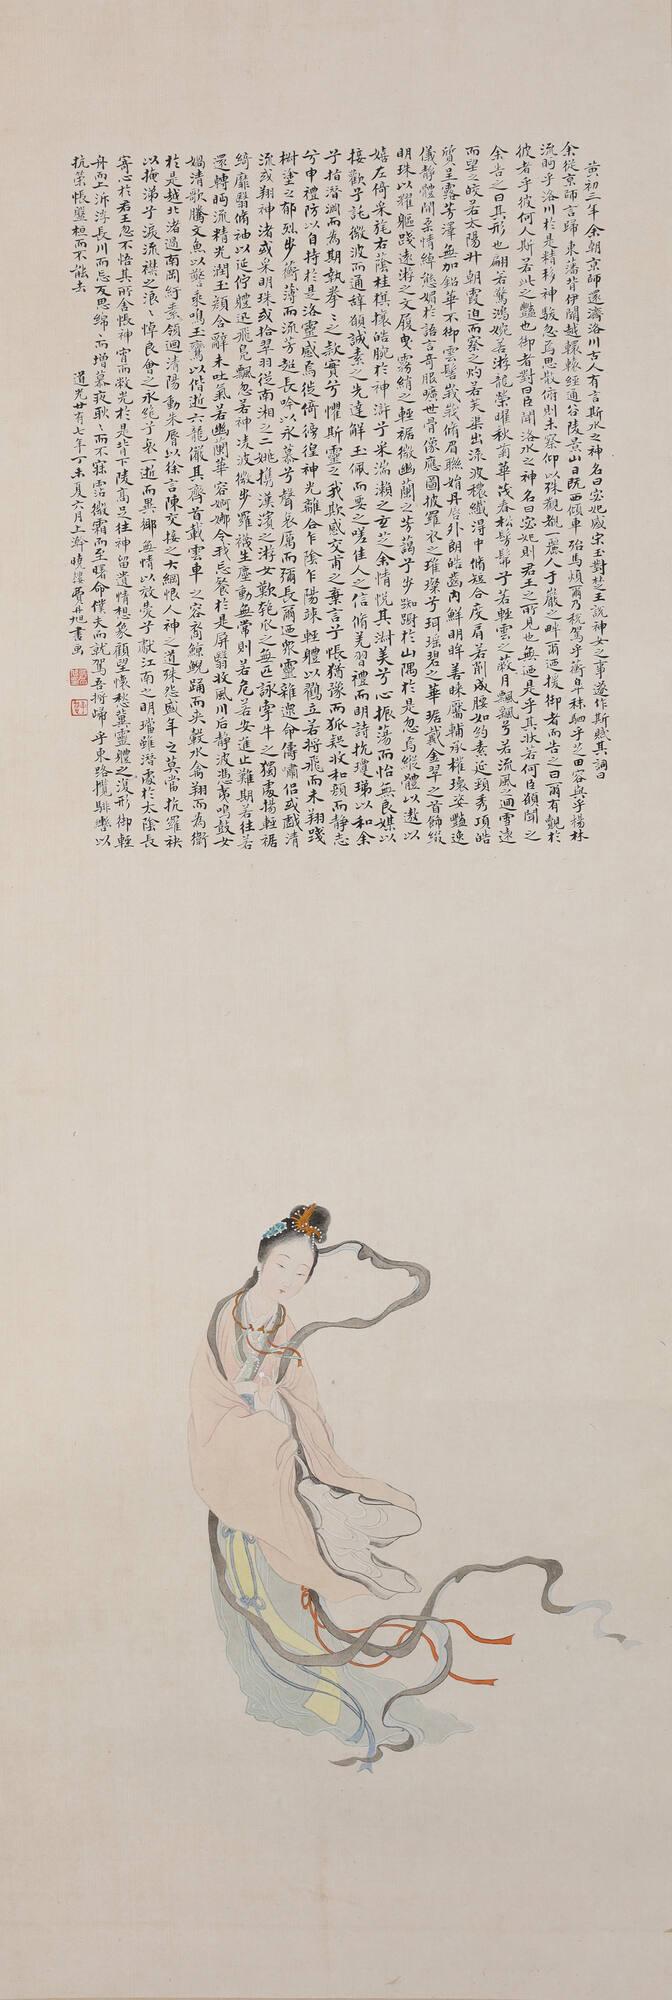 黃初三年余朝京師還濟洛川古人有言斯水之神名曰宓妃感宋玉對楚王說神女之事遂作斯賦其詞曰
余從京師言歸東藩背伊闕越轘轅經通谷陵景山日既西傾車殆馬煩爾乃稅駕乎蘅皋秣駟乎芝田容與乎楊林
流眄乎洛川於是精移神駭忽焉思散俯則未察仰以殊觀覩一麗人于巖之畔爾迺援御者而告之曰爾有覿於
彼者乎彼何人斯若此之豔也御者對曰臣聞洛水之神名曰宓妃則君王之所見也無迺是乎其狀若何臣願聞之
余告之曰其形也翩若驚鴻婉若游龍榮曜秋菊華茂春松髣髴兮若輕雲之蔽月飄飄兮若流風之迴雪遠
而望之皎若太陽升朝霞迫而察之灼若芙蕖出淥波穠纖得中脩短合度肩若削成腰如約素延頸秀項皓
質呈露芳澤無加鉛華不御雲髻峩峩脩眉聯娟丹脣外朗皓齒內鮮明眸善睞靨輔承權瓌姿豔逸
儀靜體閒柔情綽態媚於語言奇服曠世骨像應圖披羅衣之璀璨兮珥瑤碧之華琚戴金翠之首飾綴
明珠以耀軀踐遠游之文履曳霧綃之輕裾微幽蘭之芳藹兮步踟躕於山隅於是忽焉縱體以遨以
嬉左倚采旄右蔭桂旗攘皓腕於神滸兮采湍瀨之玄芝余情悅其淑美兮心振蕩而怡無良媒以
接歡兮託微波而通辭願誠素之先達解玉佩而要之嗟佳人之信脩羌習禮而明詩抗瓊珶以和余
兮指潛淵而為期執拳〻之款實兮懼斯靈之我欺感交甫之棄言兮悵猶豫而狐疑收和顏而靜志
兮申禮防以自持於是洛靈感焉徙倚徬徨神光離合乍陰乍陽竦輕體以鶴立若將飛而未翔踐
椒塗之郁烈步蘅薄而流芳超長吟以永慕兮聲哀厲而彌長爾迺眾靈雜遝命儔嘯侶或戲清
流或翔神渚或采明珠或拾翠羽從南湘之二姚攜漢濱之游女歎匏瓜之無匹詠牽牛之獨處揚輕裾
綺靡翳脩袖以延佇體迅飛鳧飄忽若神淩波微步羅襪生塵動無常則若危若安進止難期若往若
還轉眄流精光潤玉顏含辭未吐氣若幽蘭華容婀娜令我忘餐於是屏翳收風川后靜波馮夷鳴鼓女
媧清歌騰文魚以警乘鳴玉鸞以偕逝六龍儼其齊首載雲車之容裔鯨鯢踊而夾轂水禽翔而為衛
於是越北渚過南岡紆素領迴清陽動朱脣以徐言陳交接之大綱恨人神之道殊怨盛年之莫當抗羅袂
以掩涕兮淚流襟之浪〻悼良會之永絕兮哀一逝而異鄉無情以效愛兮獻江南之明璫雖潛處於太陰長
寄心於君王忽不悟其所舍悵神宵而蔽光於是背下陵高足往神留遺情想象顧望懷愁冀靈體之復形御輕
舟而上泝浮長川而忘反思綿〻而增慕夜耿〻而不寐霑微霜而至曙命僕夫而就駕吾將歸乎東路攬騑轡以
抗策悵盤桓而不能去 道光廿有七年丁未夏六月上澣曉樓費丹旭書畫